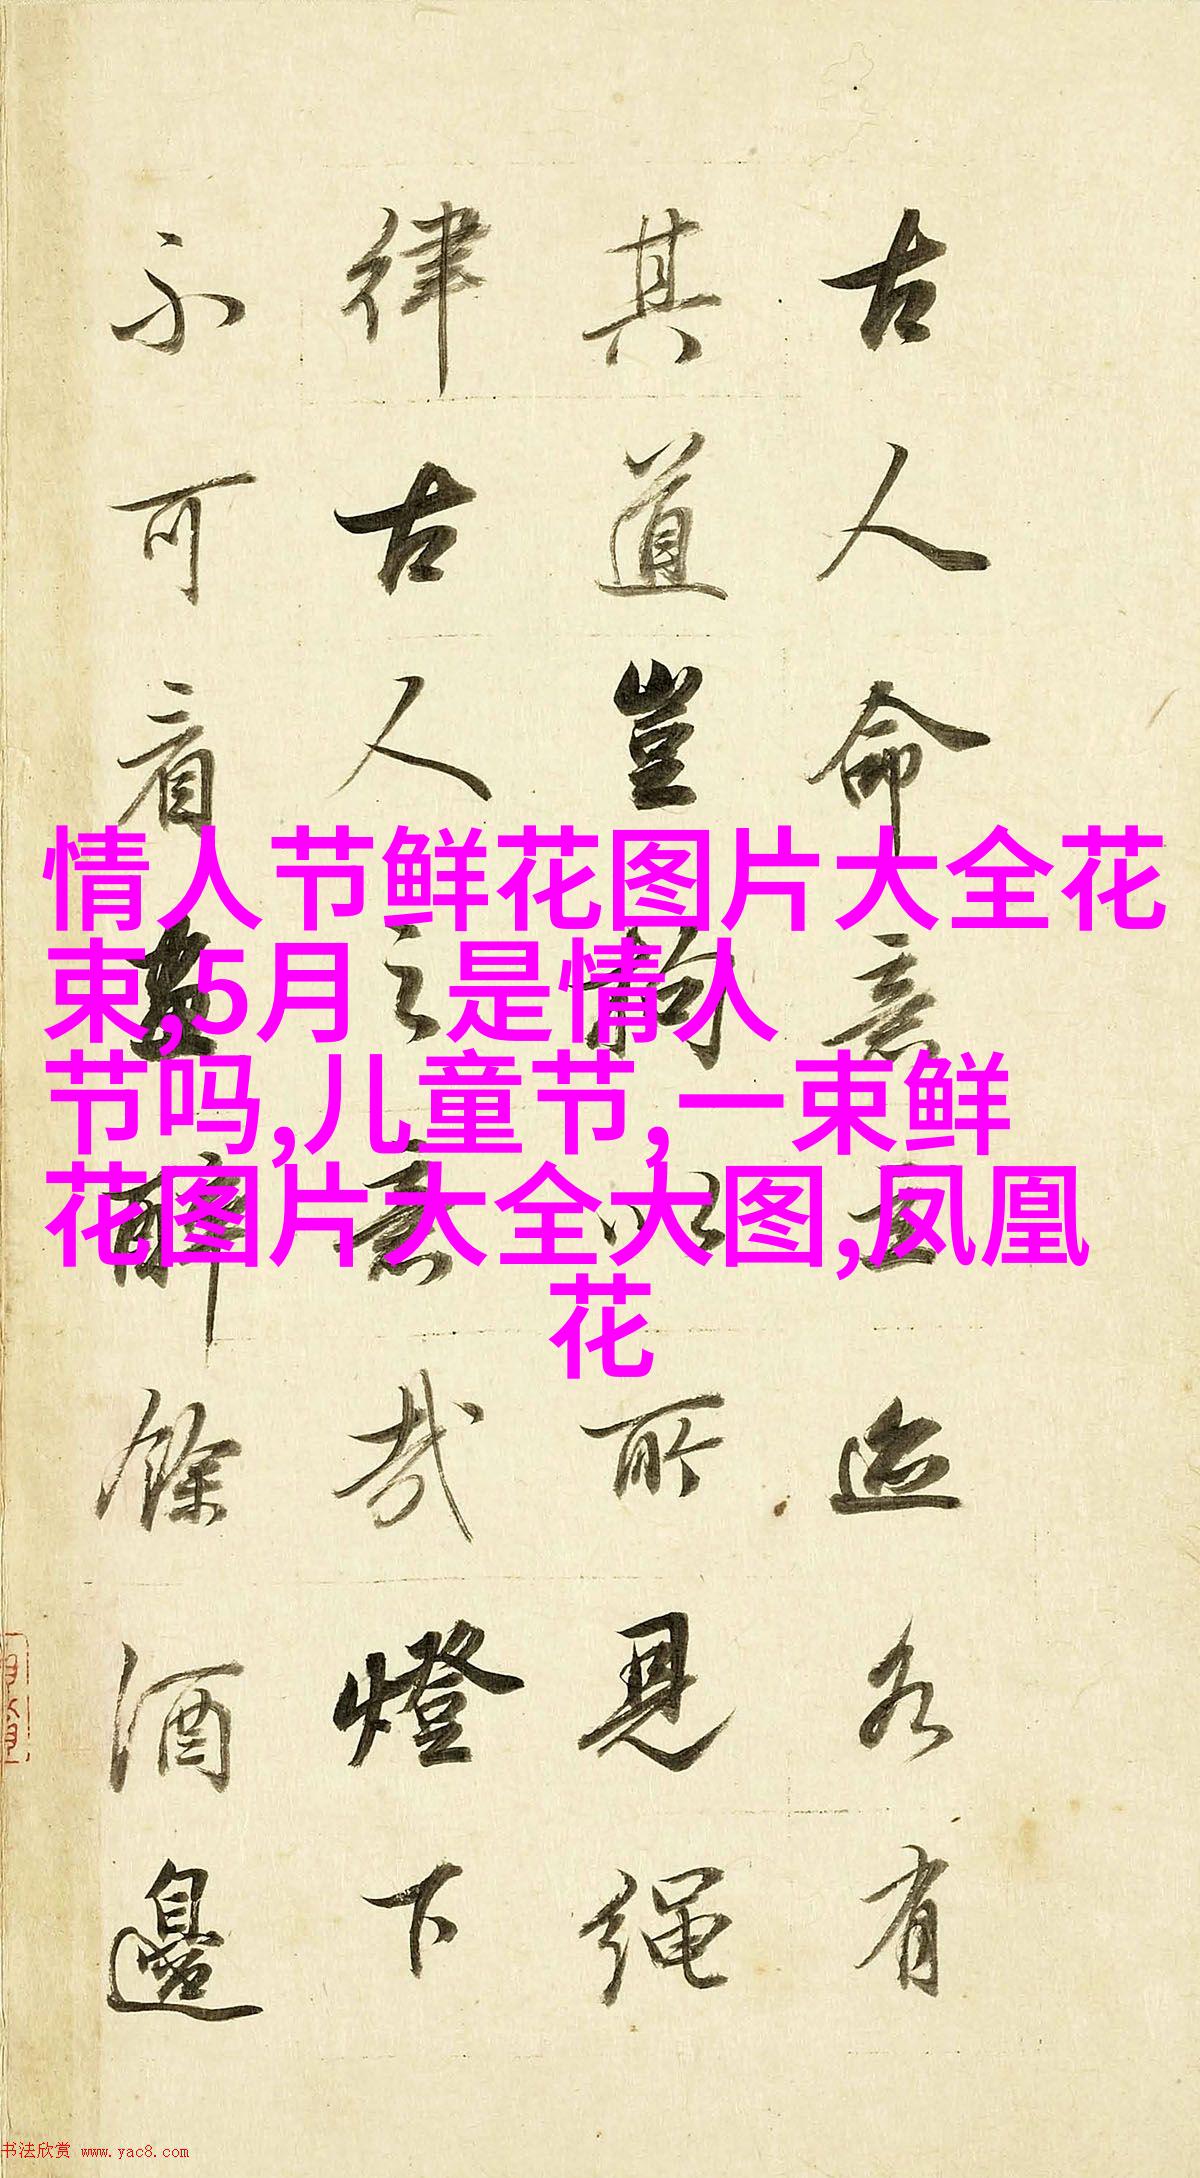 古人命意立迹各有
其道豈拘以所見繩
律古人之意哉燈下
不可看畫醉餘酒邊
情人节鲜花图片大全花
束,5月 是情人
节吗,儿童节,一束鲜
花图片大全大图,凤凰
花
书法欣赏 www.yac8.com